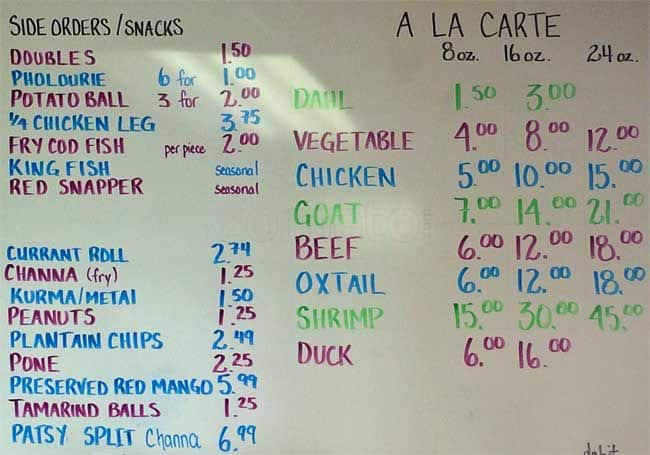 SIDE ORDERS/SNACKS
DOUBLES 1.50
PHOLOURIE 6 for 1.00
POTATO BALL 3 for 2.00
1/4 CHICKEN LEG 3.75
FRY COD FISH per piece 2.00
KING FISH seasonal
RED SNAPPER seasonal
CURRANT ROLL 2.74
CHANNA (fry) 1.25
KURMA/METAI 1.50
PEANUTS 1.25
PLANTAIN CHIPS 2.49
PONE 2.25
PRESERVED RED MANGO 5.99
TAMARIND BALLS 1.25
PATSY SPLIT Channa 6.99
A LA CARTE
8 oz. 16 oz. 24 oz.
DAHL 1.50 3.00
VEGETABLE 4.00 8.00 12.00
CHICKEN 5.00 10.00 15.00
GOAT 7.00 14.00 21.00
BEEF 6.00 12.00 18.00
OXTAIL 6.00 12.00 18.00
SHRIMP 15.00 30.00 45.00
DUCK 6.00 16.00